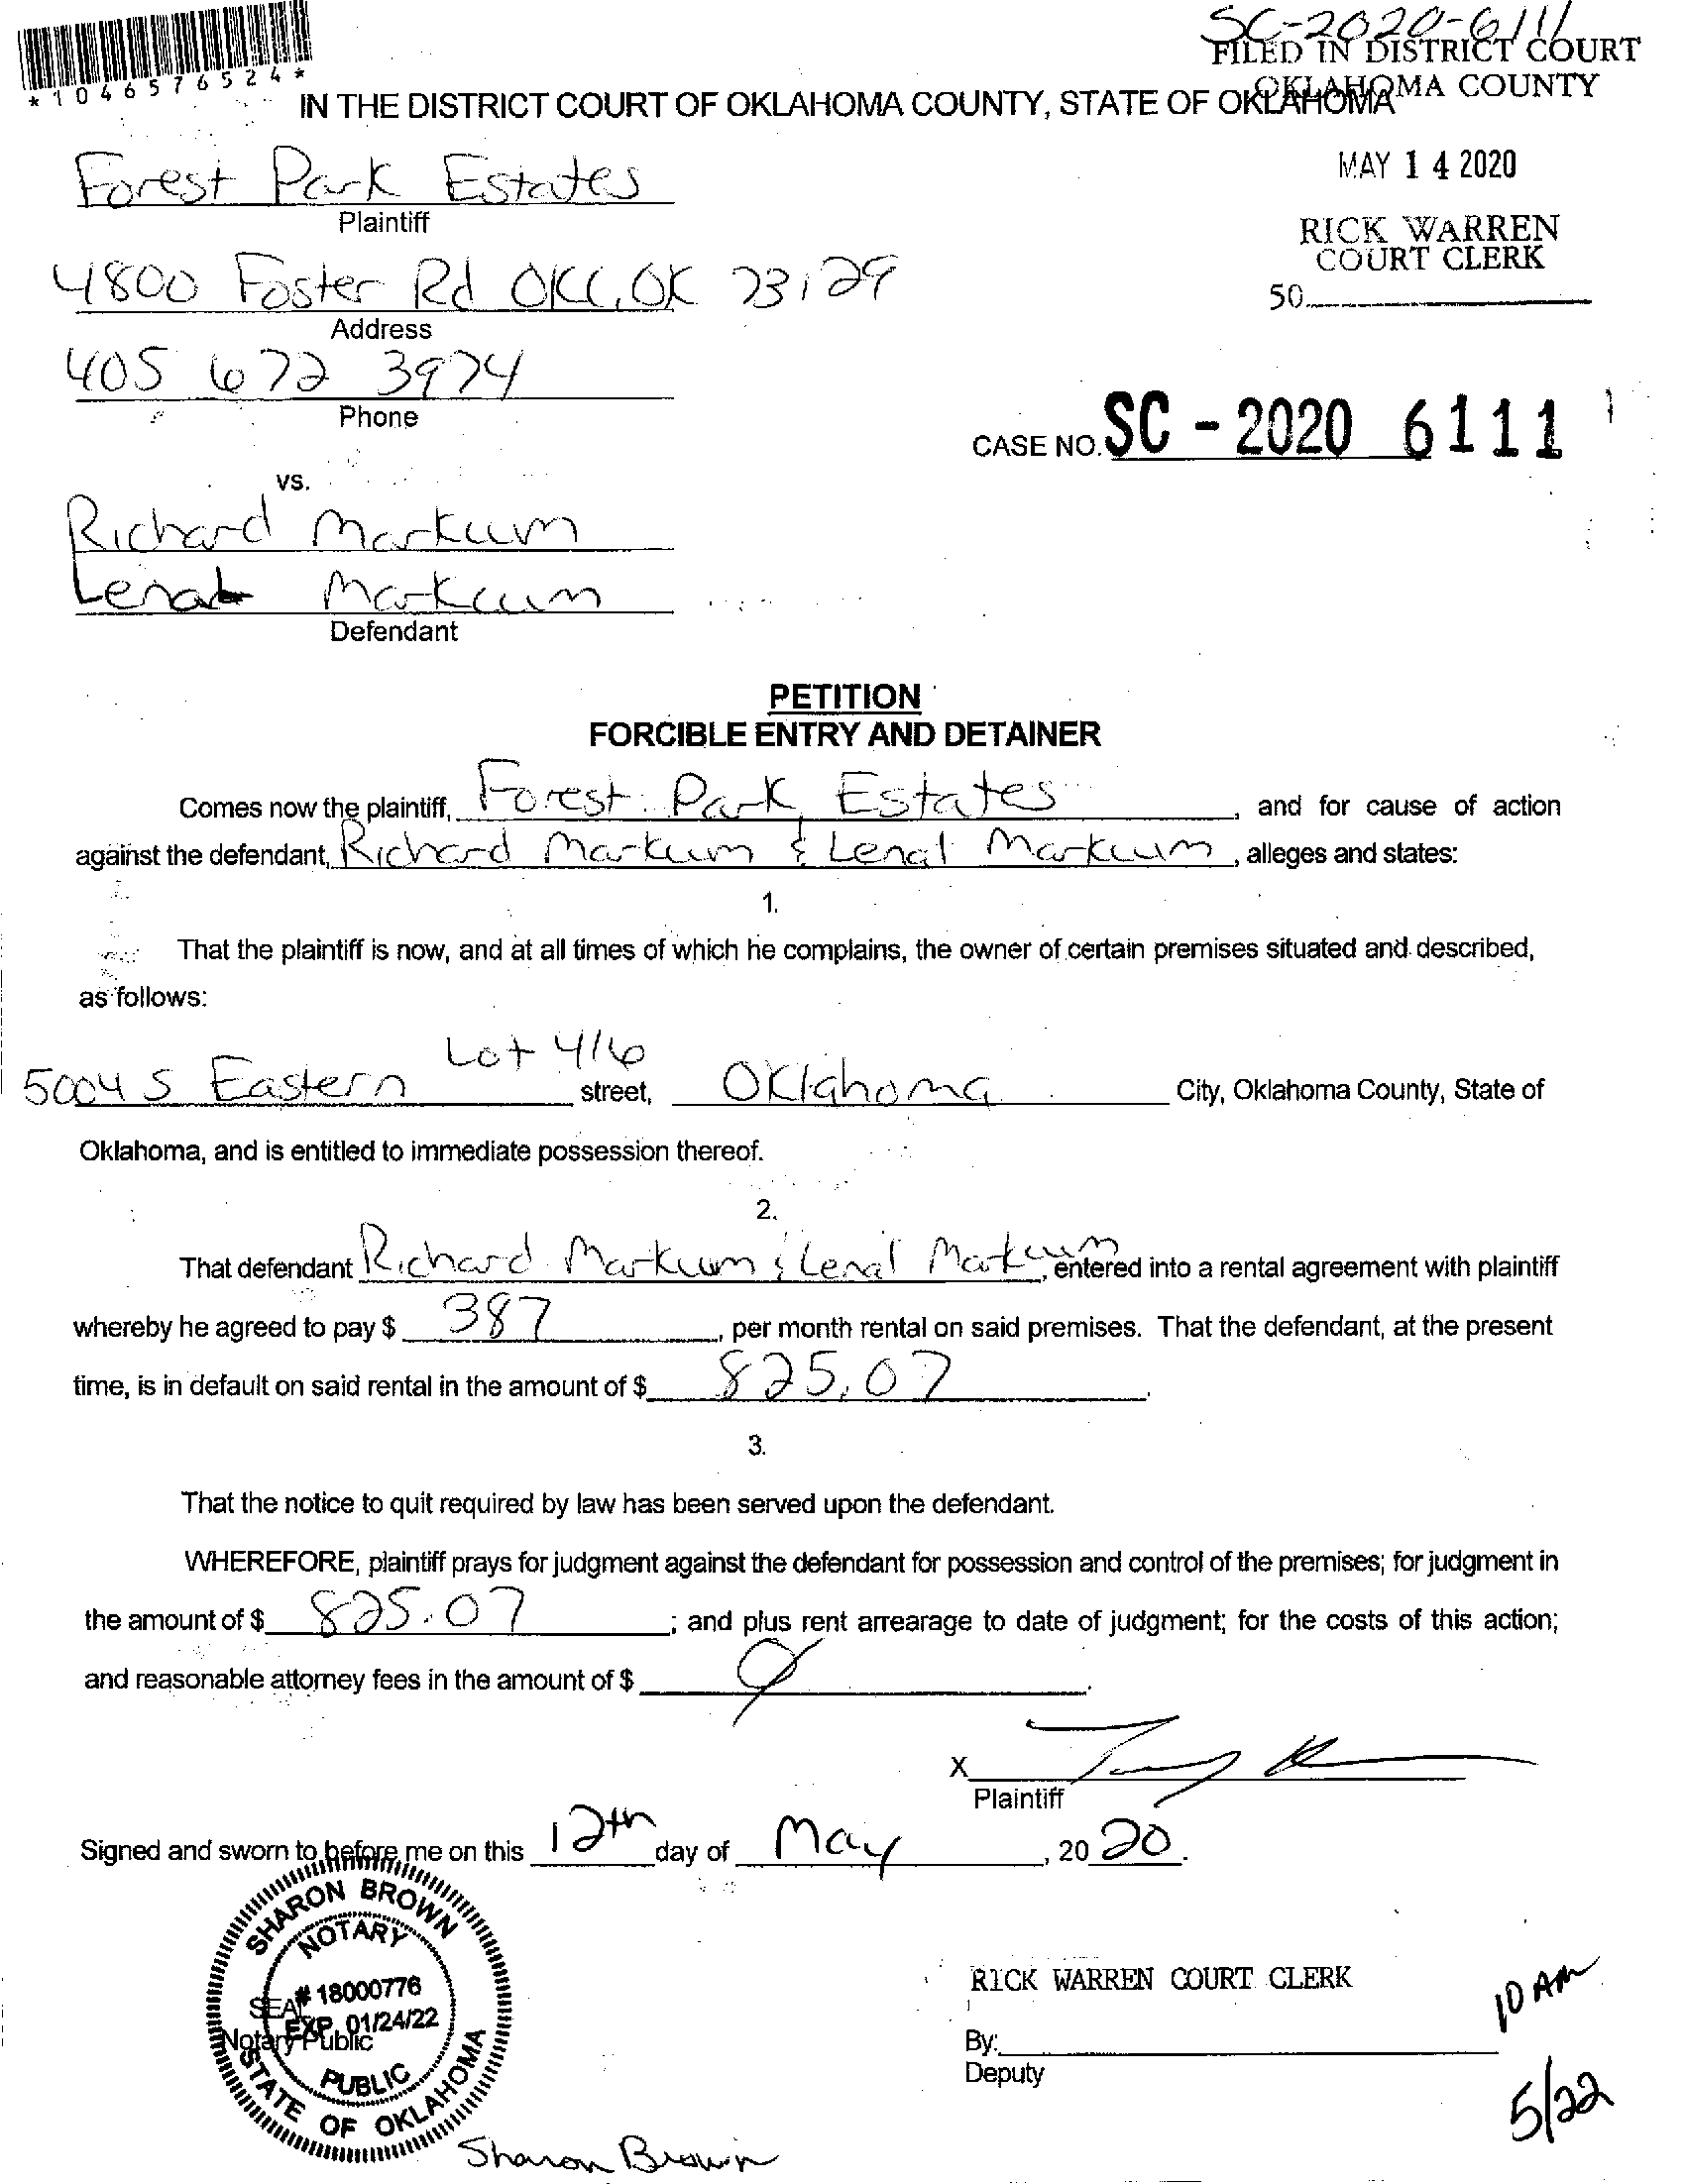 SC-2020-6111
FILED IN DISTRICT COURT
OKLAHOMA COUNTY
*1046576524*
IN THE DISTRICT COURT OF OKLAHOMA COUNTY, STATE OF OKLAHOMA
MAY 14 2020
Forest Park Estates
Plaintiff
RICK WARREN
COURT CLERK
4800 Foster Rd OKC, OK 73129
50
Address
405 672 3974
Phone
CASE NO. SC - 2020 6111
vs.
Richard Markum
Markum
Defendant
PETITION
FORCIBLE ENTRY AND DETAINER
Comes now the plaintiff, Forest Park Estates, and for cause of action
against the defendant, Richard Markum & Lenal Markum, alleges and states:
1.
That the plaintiff is now, and at all times of which he complains, the owner of certain premises situated and described,
as follows:
Lot 416
5004 S Eastern street, Oklahoma City, Oklahoma County, State of
Oklahoma, and is entitled to immediate possession thereof.
2.
That defendant Richard Markum & Lenal Markum, entered into a rental agreement with plaintiff
whereby he agreed to pay $ 387, per month rental on said premises. That the defendant, at the present
time, is in default on said rental in the amount of $ 825.07.
3.
That the notice to quit required by law has been served upon the defendant.
WHEREFORE, plaintiff prays for judgment against the defendant for possession and control of the premises; for judgment in
the amount of $ 825.07; and plus rent arrearage to date of judgment; for the costs of this action;
and reasonable attorney fees in the amount of $
X
Plaintiff
Signed and sworn to before me on this 12th day of May, 2020.
SHARON BROWN
NOTARY
# 18000776
SEAL
EXP. 01/24/22
Notary Public
PUBLIC
STATE OF OKLAHOMA
Sharon Brown
RICK WARREN COURT CLERK
By:
Deputy
10 AM
5/22